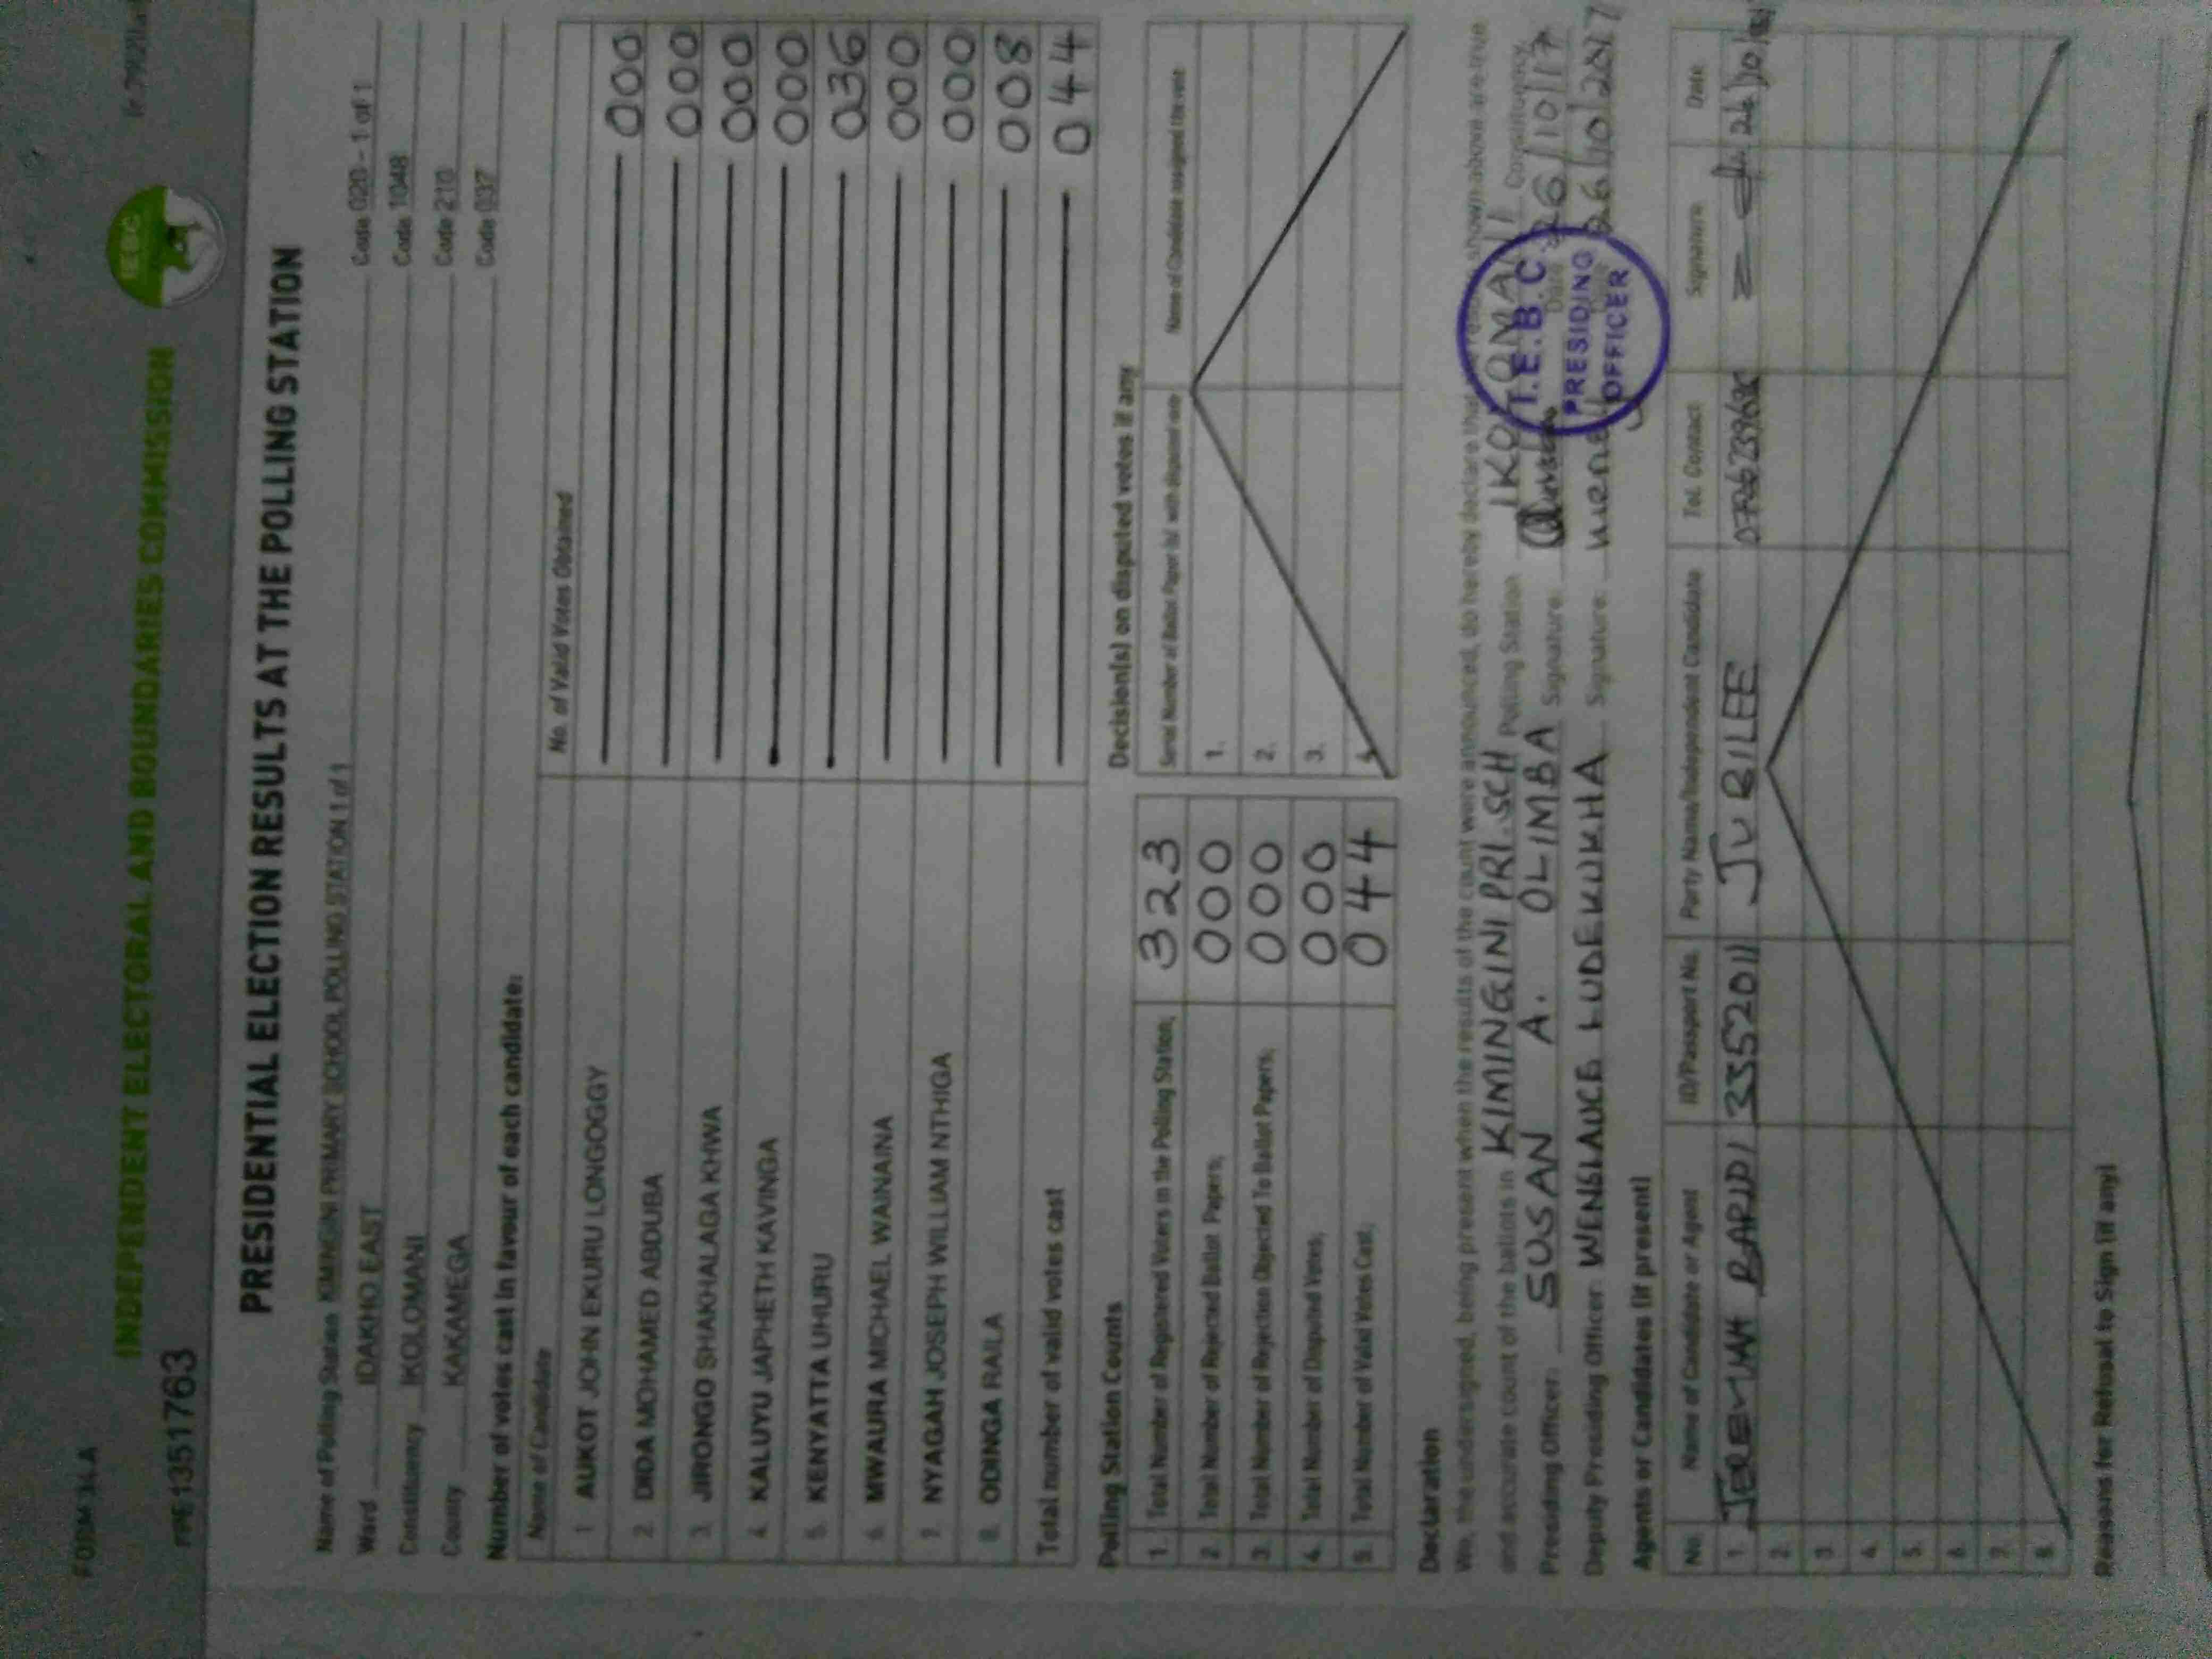 FORM 34A
INDEPENDENT ELECTORAL AND BOUNDARIES COMMISSION
IEBC
PRESIDENTIAL ELECTION RESULTS AT THE POLLING STATION
Name of Polling Station KIMINGINI PRIMARY SCHOOL POLLING STATION 1 of 1
Ward IDAKHO EAST Code 020 - 1 of 1
Constituency IKOLOMANI Code 1048
County KAKAMEGA Code 210
Code 037
Number of votes cast in favour of each candidate:
Name of Candidate No. of Valid Votes Obtained
1 AUKOT JOHN EKURU LONGOGGY 000
2. DIDA MOHAMED ABDUBA 000
3. JIRONGO SHAKHALAGA KHWA 000
4. KALUYU JAPHETH KAVINGA 000
5. KENYATTA UHURU 036
6. MWAURA MICHAEL WAINAINA 000
7. NYAGAH JOSEPH WILLIAM NTHIGA 000
8. ODINGA RAILA 008
Total number of valid votes cast 044
Polling Station Counts
1. Total Number of Registered Voters in the Polling Station; 323
2. Total Number of Rejected Ballot Papers; 000
3. Total Number of Rejection Objected To Ballot Papers; 000
4. Total Number of Disputed Votes; 000
5. Total Number of Valid Votes Cast; 044
Decision(s) on disputed votes if any
Serial Number of Ballot Paper (s) with disputed vote Name of Candidate assigned the vote
1.
2.
3.
4.
Declaration
We, the undersigned, being present when the results of the count were announced, do hereby declare that the results shown above are true
and accurate count of the ballots in KIMINGINI PRI. SCH Polling Station IKOLOMANI Constituency
Presiding Officer: SUSAN A. OLIMBA Signature: Date 26/10/17
Deputy Presiding Officer: WENSLAUCE LUDEKUKHA Signature: 26/10/2017
I.E.B.C.
PRESIDING
OFFICER
Agents or Candidates (if present)
No. Name of Candidate or Agent ID/Passport No. Party Name/Independent Candidate Tel. Contact Signature Date
1. JEREMIAH 33552011 JUBILEE
2.
3.
4.
5.
6.
7.
8.
Reasons for Refusal to Sign (if any)